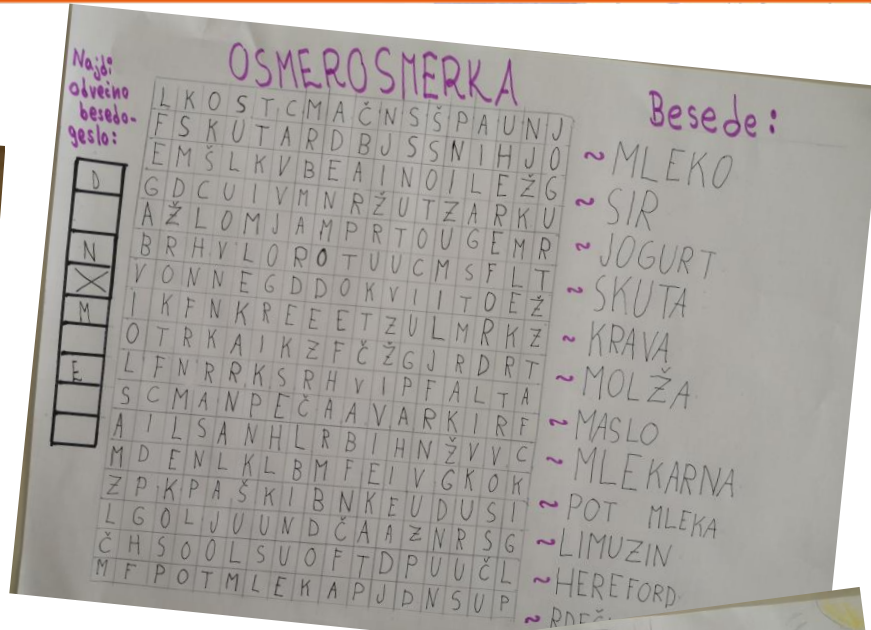 Najdi
odvečno
besedo-
geslo:
OSMEROSMERKA
D
N
M
E
L K O S T C M A Č N S Š P A U N J
F S K U T A R D B J S S N I H J O
E M Š L K V B E A I N O I L E Ž G
G D C U I V M N R Ž U T Z A R K U
A Ž L O M J A M P R T O U G E M R
B R H V L O R O T U U C M S F L T
V O N N E G D D O K V I I T O E Ž
I K F N K R E E E T Z U L M R K Z
O T R K A I K Z F Č Ž G J R D R T
L F N R R K S R H V I P F A L T A
S C M A N P E Č A A V A R K I R F
A I L S A N H L R B I H N Ž V V C
M D E N L K L B M F E I V G K O K
Z P K P A Š K I B N K E U D U S I
L G O L J U U N D Č A A Z N R S G
Č H S O O L S U O F T D P U U Č L
M F P O T M L E K A P J D N S U P
Besede:
~ MLEKO
~ SIR
~ JOGURT
~ SKUTA
~ KRAVA
~ MOLŽA
~ MASLO
~ MLEKARNA
~ POT MLEKA
~ LIMUZIN
~ HEREFORD